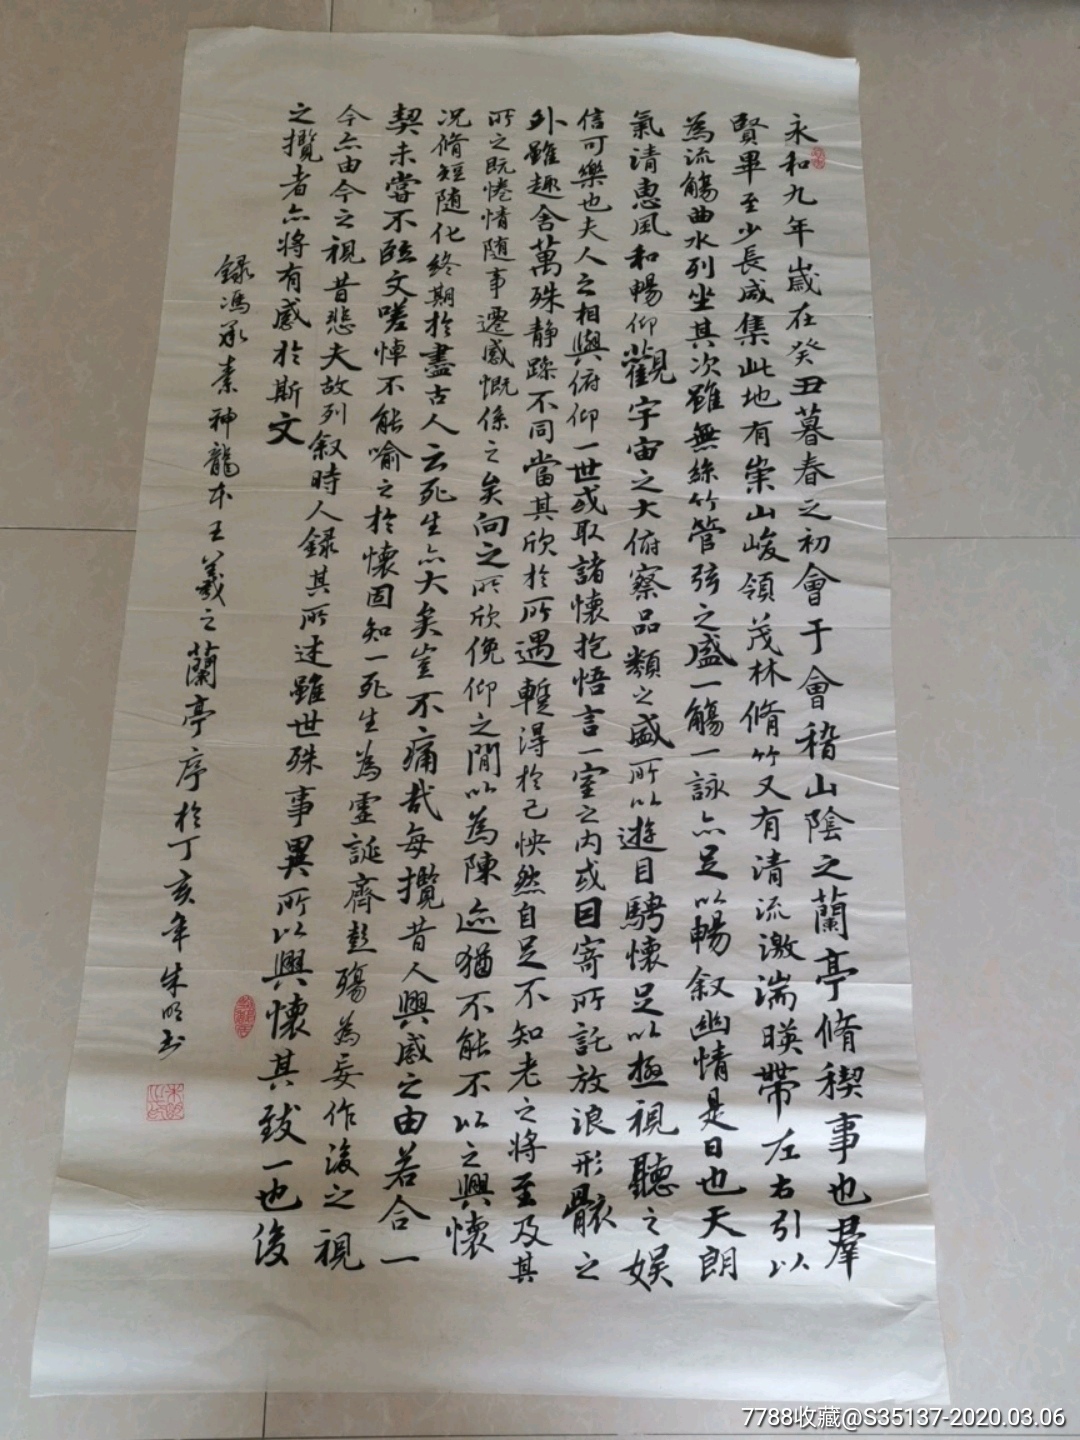 永和九年歲在癸丑暮春之初會于會稽山陰之蘭亭脩稧事也羣
賢畢至少長咸集此地有崇山峻領茂林脩竹又有清流激湍暎帶左右引以
為流觴曲水列坐其次雖無絲竹管弦之盛一觴一詠亦足以暢叙幽情是日也天朗
氣清惠風和暢仰觀宇宙之大俯察品類之盛所以遊目騁懷足以極視聽之娛
信可樂也夫人之相與俯仰一世或取諸懷抱悟言一室之內或因寄所託放浪形骸之
外雖趣舍萬殊静躁不同當其欣於所遇蹔得於己怏然自足不知老之將至及其
所之既惓情随事遷感慨係之矣向之所欣俛仰之間以為陳迹猶不能不以之興懷
況脩短随化終期於盡古人云死生亦大矣豈不痛哉每攬昔人興感之由若合一
契未甞不臨文嗟悼不能喻之於懷固知一死生為虛誕齊彭殤為妄作後之視
今亦由今之視昔悲夫故列叙時人録其所述雖世殊事異所以興懷其致一也後
之攬者亦將有感於斯文
録馮承素神龍本王羲之蘭亭序於丁亥年朱明书
7788收藏@S35137-2020.03.06